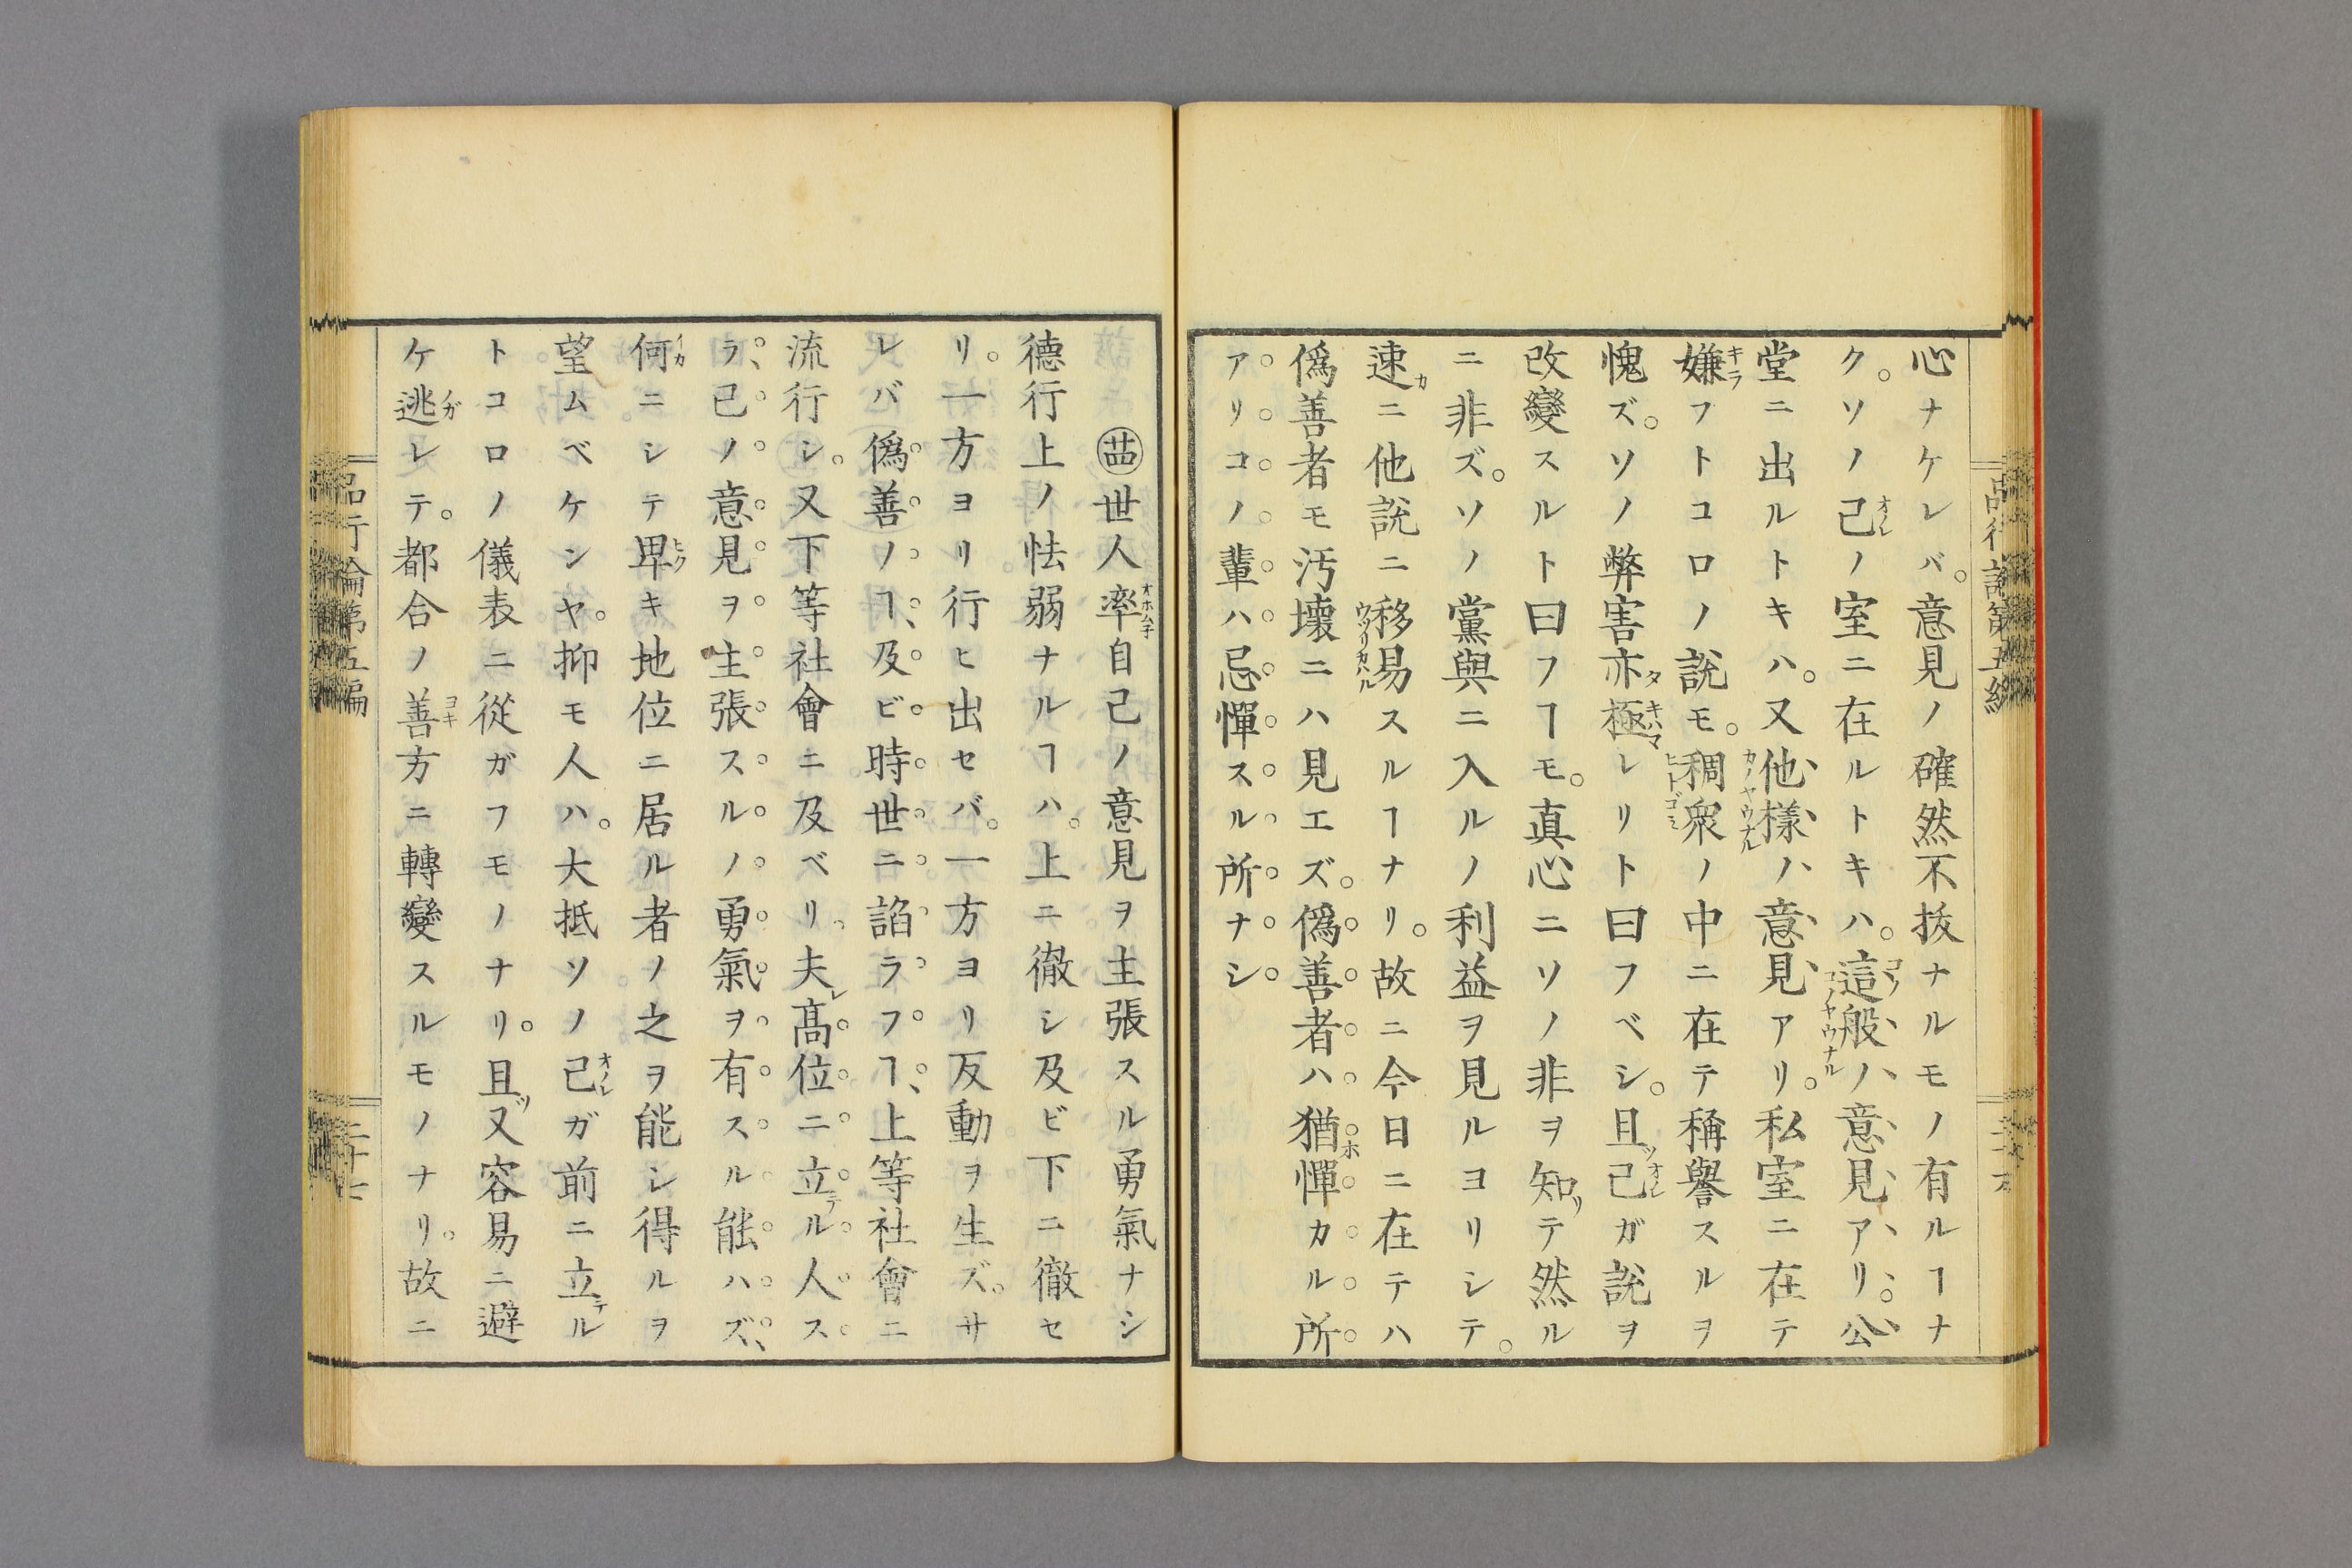 心ナケレバ。意見ノ確然不拔ナルモノ有ルヿナ
ク。ソノ己ノ室ニ在ルトキハ。這般ノ意見アリ。公
堂ニ出ルトキハ。又他樣ノ意見アリ。私室ニ在テ
嫌フトコロノ說モ。稠衆ノ中ニ在テ稱譽スルヲ
愧ズ。ソノ弊害亦極レリト曰フベシ。且己ガ說ヲ
改變スルト曰フヿモ。真心ニソノ非ヲ知テ然ル
ニ非ズ。ソノ黨與ニ入ルノ利益ヲ見ルヨリシテ。
速ニ他說ニ移易スルヿナリ。故ニ今日ニ在テハ
僞善者モ汚壞ニハ見エズ。僞善者ハ猶憚カル所
アリコノ輩ハ忌憚スル所ナシ
㔺世人率自己ノ意見ヲ主張スル勇氣ナシ
德行上ノ怯弱ナルヿハ。上ニ徹シ及ビ下ニ徹セ
リ。一方ヨリ行ヒ出セバ。一方ヨリ反動ヲ生ズ。サ
レバ僞善ノヿ、及ビ時世ニ諂ラフヿ、上等社會ニ
流行シ。又下等社會ニ及ベリ夫髙位ニ立ル人ス
ラ、己ノ意見ヲ主張スルノ勇氣ヲ有スル能ハズ、
何ニシテ卑キ地位ニ居ル者ノ之ヲ能シ得ルヲ
望ムベケンヤ。抑モ人ハ。大抵ソノ己ガ前ニ立ル
トコロノ儀表ニ從ガフモノナリ。且又容易ニ避
ケ逃レテ。都合ノ善方ニ轉變スルモノナリ。故ニ
品行論第五編
二十七